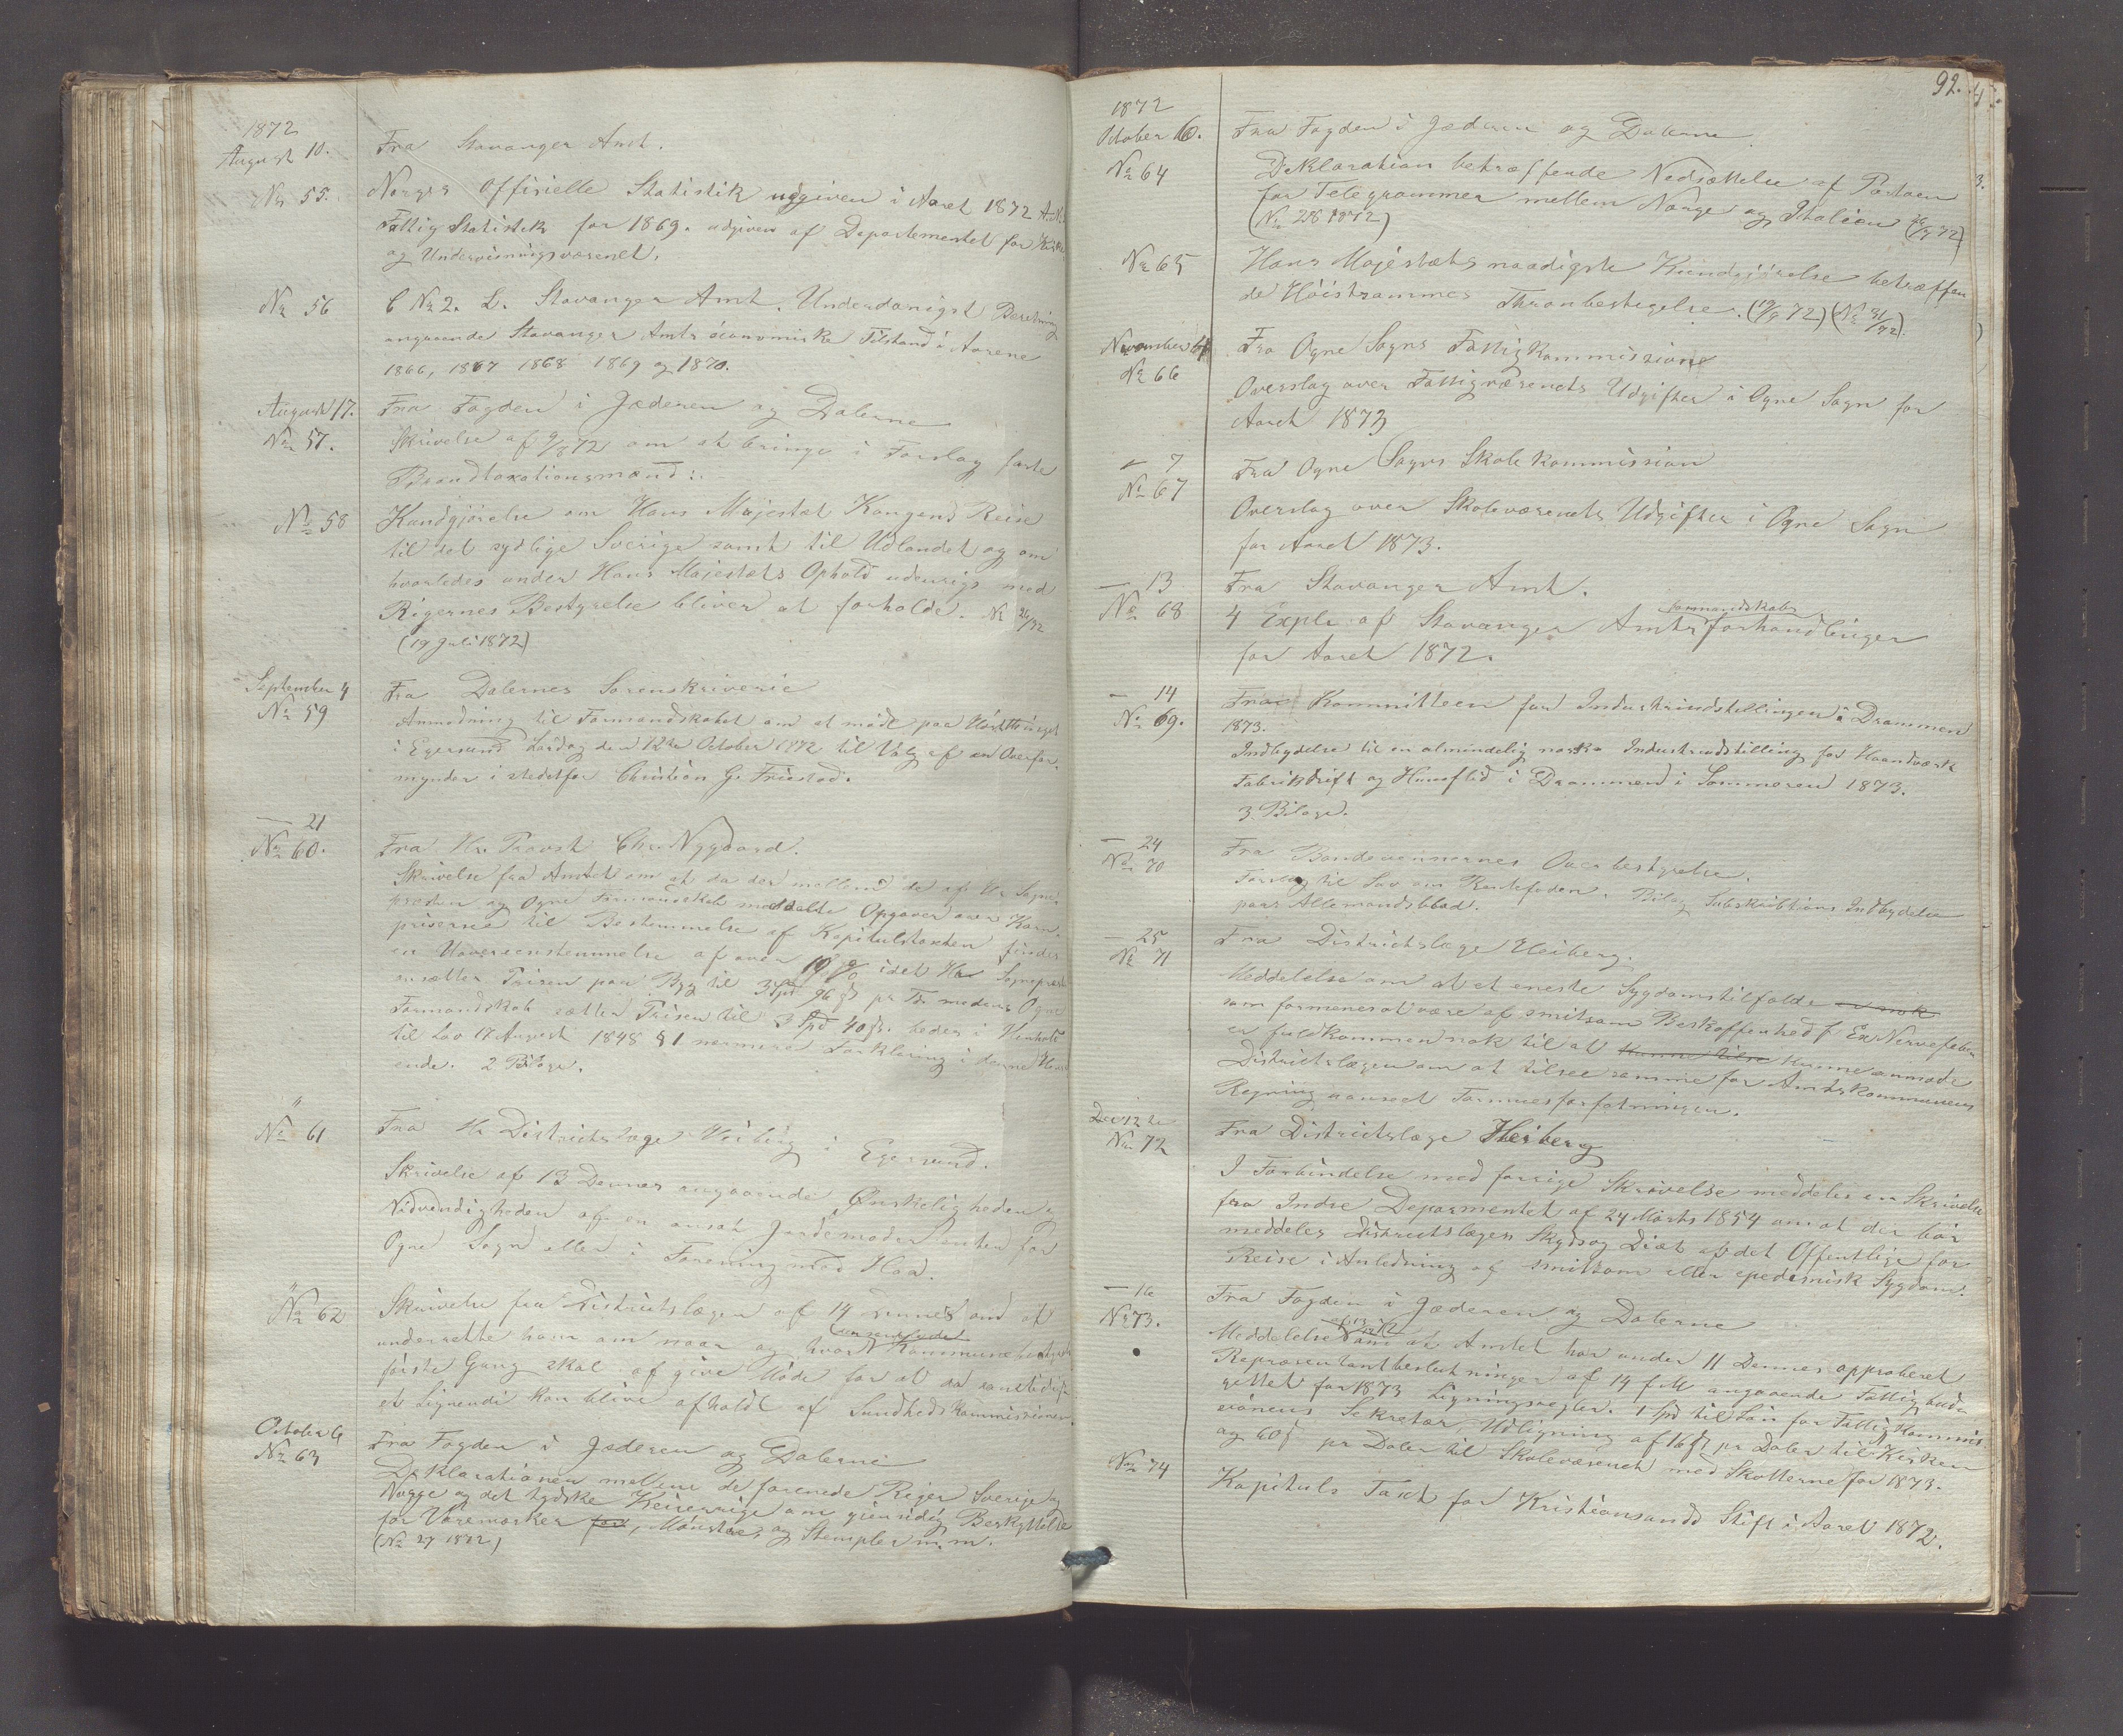 1872
August 10.
Fra Stavanger Amt.
No 55.
Norges Officielle Statistik udgiven i Aaret 1872
Fattig Statistik for 1869. udgiven af Departementet for Kirke
og Undervisningsvæsenet.
No 56
C No 2. L. Stavanger Amt. Underdanigst Beretning
angaaende Stavanger Amts öconomiske Tilstand i Aarene
1866, 1867 1868 1869 og 1870.
August 17.
Fra Fogden i Jæderen og Dalerne
No 57.
Skrivelse af 9/8 72 om at bringe i Forslag faste
Brandtaxationsmænd:.
No 58
Kundgjörelse om Hans Majestæt Kongens Reise
til det sydlige Sverige samt til Udlandet og om
hvorledes under Hans Majestæts Ophold udenrigs med
Rigernes Bestyrelse bliver at forholde. No 26/72
(19 Juli 1872)
September 4
Fra Dalernes Sorenskriverie
No 59
Anmodning til Formandskabet om at möde paa
i Egersund Lördag den 12te October 1872 til Valg af en Overfor-
mynder i stedetfor Christian G. Friestad.
— 21
No 60.
Fra Hr. Provst Chr. Nygaard.
Skrivelse fra Amtet om at da der mellem de af Hr Sogne-
præsten og Ogne Formandskab meddelte Opgaver over Korn-
priserne til Bestemmelse af Kapitulstaxten findes
en Uovereensstemmelse af over 10 % idet Hr Sognepræst
en sætter Prisen paa Byg til 3 Spd 96 s pr Td medens Ogne
Formandskab sætter Prisen til 3 Spd 40 s. bedes i Henhold
til Lov 17 August 1848 § 1 nærmere Forklaring i denne Hen
ende. 2 Bilage.
"
No 61
Fra Hr Districtslæge Heiberg i Egersund.
Skrivelse af 13 Dennes angaaende Ønskeligheden og
Nödvendigheden af en ansat Jordemoder enten for
Ogne Sogn eller i Forening med Haa.
"
No 62
Skrivelse fra Districtslægen af 14 Dennes om at
underrette ham om naar og hvor Kommunebestyrelsen
förste Gang skal afgive Möde for at da samtidigt
et Lignende kan blive afholdt af Sundhedskommissionen.
October 6
Fra Fogden i Jæderen og Dalerne
No 63
Deklarationen mellem de forenede Riger Sverige og
Norge og det tydske Keiserrige om gjensidig Beskyttelse
for Varemærker for, Mönstre og Stempler m. m.
(No 27 1872)
92.
1872
October 6.
Fra Fogden i Jæderen og Dalerne
No 64
Deklaration betræffende Nedsættelse af Portoen
for Telegrammer mellem Norge og Italien
(No 28 1872)
No 65
Hans Majestæts naadigste Kundgjörelse betræffen
de Höistsammes Thronbestigelse. (19/9 72) (No 31/72).
November
Fra Ogne Sogns Fattigkommission
No 66
Overslag over Fattigvæsenets Udgifter i Ogne Sogn for
Aaret 1873
— 7
Fra Ogne Sogns Skolekommission
No 67
Overslag over Skolevæsenets Udgifter i Ogne Sogn
for Aaret 1873.
— 13
Fra Stavanger Amt.
No 68
formandskabs
4 Expl. af Stavanger Amtsforhandlinger
for Aaret 1872.
— 14
Fra Kommitteen for Industriudstillingen i Drammen
No 69.
1873.
Indbydelse til en almindelig norsk Industriudstilling for Haandværk
Fabrikdrift og Huusflid i Drammen i Sommeren 1873.
3 Bilage.
— 24
Fra Bondevennernes Overbestyrelse.
No 70
Forslag til Lov om Rentefoden. Bilag Subskribtions Indbydelse
paa Allemandsblad.
— 25
Fra Districtslæge Heiberg.
No 71
Meddelelse om at et eneste Sygdomstilfælde er nok
som formenes at være af smitsom Beskaffenhed f. Ex. Nervefeber
er fuldkommen nok til at kunne tilse kunne anmode
Districtslægen om at tilsee samme for Amtskommunens
Regning uanseet Formuesforfatningen.
Dec 12te
Fra Districtslæge Heiberg
No 72
I Forbindelse med forrige Skrivelse meddeles en Skrivelse
fra Indre Deparmentet af 24 Marts 1854 om at der bör
meddeles Districtslægen Skyds og Diæt af det Offentlige for
Reise i Anledning af smitsom eller epedemisk Sygdom.
— 16
Fra Fogden i Jæderen og Dalerne
No 73.
Meddelelse om at Amtet har under 11 Dennes approberet
Repræsentantbeslutninger af 14 f. M angaaende Fattigbud-
gettet for 1873 Ligningsregler. 1 Spd til Lön for Fattigkommis-
sionens Sekretær Udligning af 16 s pr Daler til Kirken
og 60 s pr Daler til Skolevæsenet med Skatterne for 1873.
No 74
Kapituls Taxt for Kristiansands Stift i Aaret 1872.